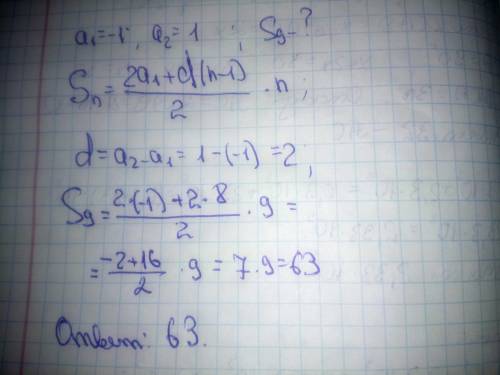 a₁=-1; a₂=1; S₉-?
Sₙ=(2a₁+d(n-1))/2 · n;
d=a₂-a₁=1-(-1)=2;
S₉=(2·(-1)+2·8)/2 · 9 =
=(-2+16)/2 · 9 = 7·9=63
Ответ: 63.